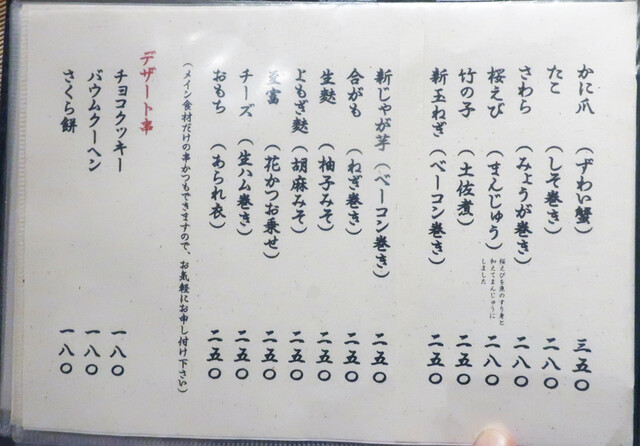 かに爪 (ずわい蟹) 三五〇
たこ (しそ巻き) 二八〇
さわら (みょうが巻き) 二八〇
桜えび (まんじゅう) 二八〇
桜えびを魚のすり身と
和えてまんじゅうに
しました
竹の子 (土佐煮) 二五〇
新玉ねぎ (ベーコン巻き) 二五〇
新じゃが芋 (ベーコン巻き) 二五〇
合がも (ねぎ巻き) 二五〇
生麩 (柚子みそ) 二五〇
よもぎ麩 (胡麻みそ) 二五〇
豆富 (花かつお乗せ) 二五〇
チーズ (生ハム巻き) 二五〇
おもち (あられ衣) 二五〇
(メイン食材だけの串かつもできますので、お気軽にお申し付け下さい)
デザート串
チョコクッキー 一八〇
バウムクーヘン 一八〇
さくら餅 一八〇